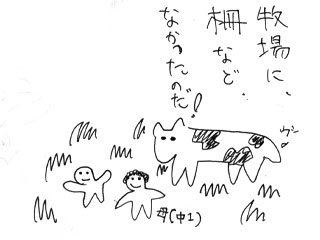 牧場に、
柵など、
なかったのだ!
ウシ
母(中1)